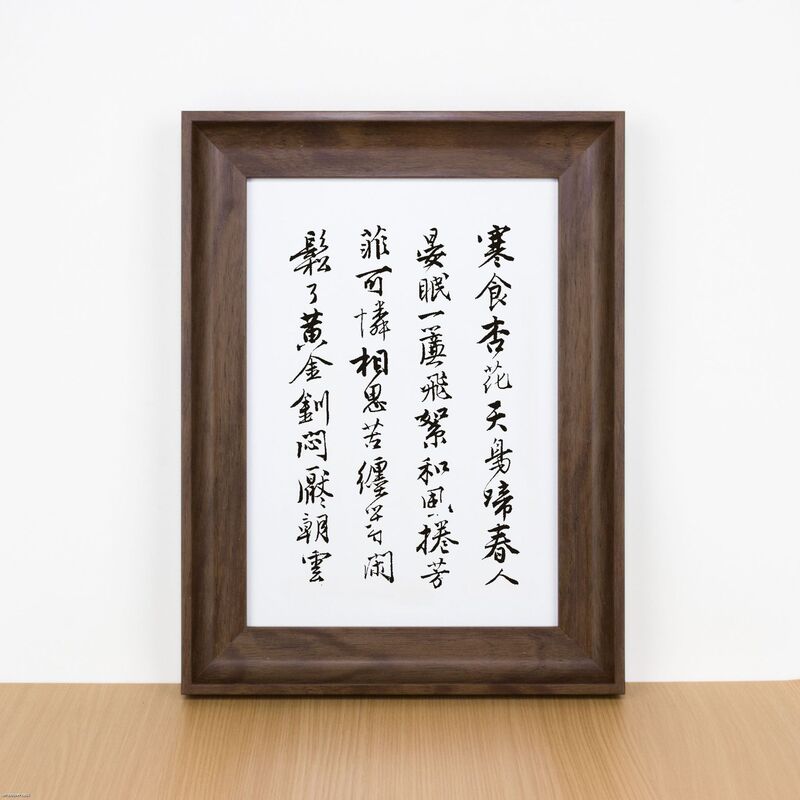 寒食杏花天鳥啼春人
晏眠一簾飛絮和風捲芳
菲可憐相思苦纏等閑
鬆了黃金釧悶厭朝雲